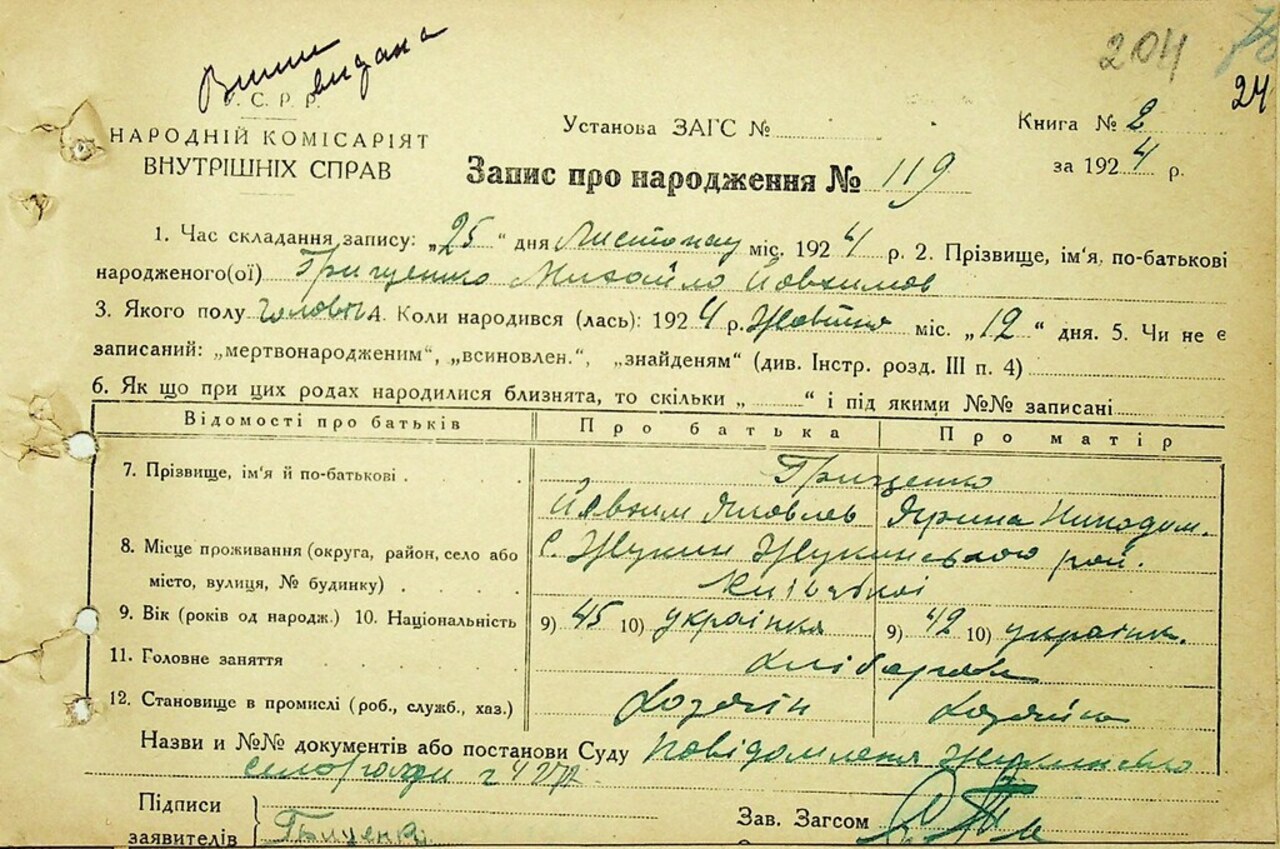 204
24
Випис видана
У. С. Р. Р.
НАРОДНІЙ КОМІСАРІЯТ
ВНУТРІШНІХ СПРАВ
Установа ЗАГС №
Книга № 2
за 1924 р.
Запис про народження № 119
1. Час складання запису: „25“ дня Листопаду міс. 1924 р. 2. Прізвище, ім'я, по-батькові
народженого(ої) Грищенко Михайло Йовхимов
3. Якого полу чоловіч 4. Коли народився (лась): 1924 р. Жовтня міс. „12“ дня. 5. Чи не є
записаний: „мертвонародженим“, „всиновлен.“, „знайденям“ (див. Інстр. розд. III п. 4)
6. Як що при цих родах народилися близнята, то скільки „ “ і під якими №№ записані
Відомості про батьків Про батька Про матір
7. Прізвище, ім'я й по-батькові Грищенко
Йовхим Яковлев Ярина Никодим.
8. Місце проживання (округа, район, село або с. Жукин Жукинського рай.
місто, вулиця, № будинку) Київської
9. Вік (років од народж.) 10. Національність 9) 45 10) українця 9) 42 10) українк.
11. Головне заняття хліборобн
12. Становище в промислі (роб., служб., хаз.) Хозяїн Хозяйка
Назви и №№ документів або постанови Суду Повідомленя Жукинсько
сельради
Підписи
заявителів Грищенко
Зав. Загсом